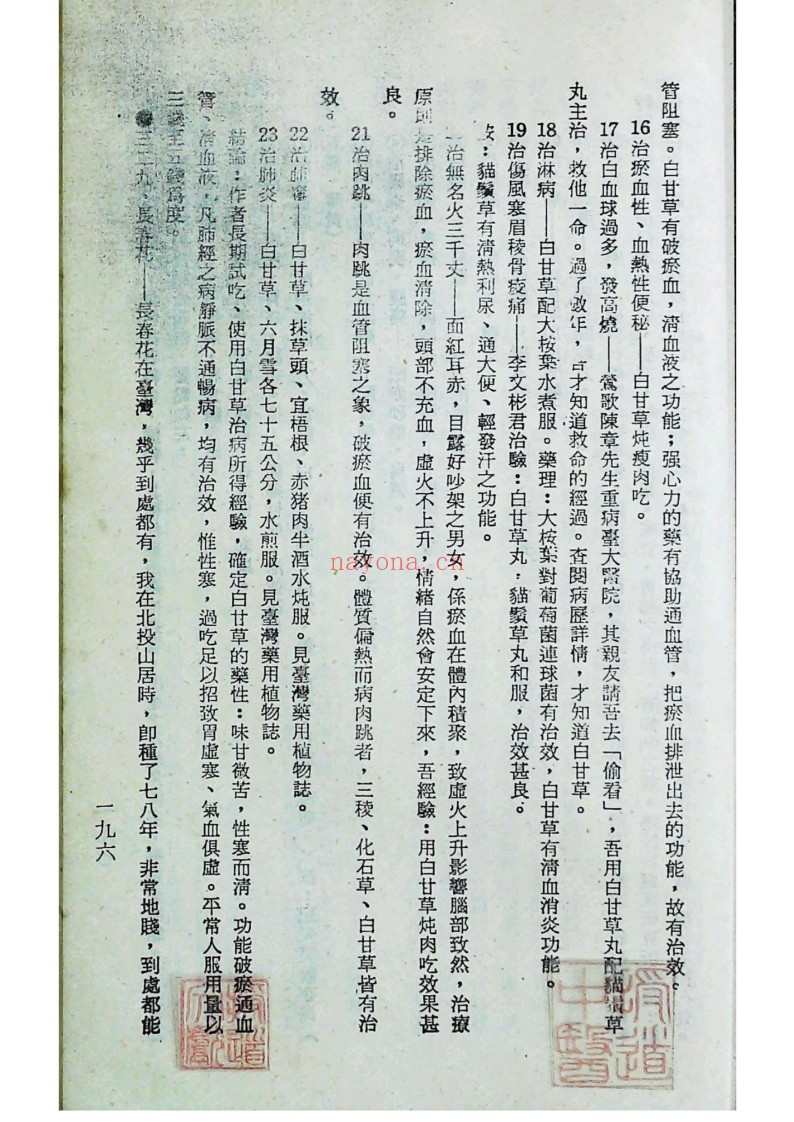 管阻塞。白甘草有破瘀血,清血液之功能;强心力的藥有協助通血管,把瘀血排泄出去的功能,故有治效。
16治瘀血性、血熱性便秘——白甘草炖瘦肉吃。
17治白血球過多,發高燒——鶯歌陳章先生重病臺大醫院,其親友請吾去「偷看」,吾用白甘草丸配貓鬚草
丸主治,救他一命。過了數年,才知道救命的經過。查閱病歷詳情,才知道白甘草。
18治淋病——白甘草配大桉葉水煮服。藥理:大桉葉對葡萄菌連球菌有治效,白甘草有清血消炎功能。
19治傷風寒眉稜骨痠痛——李文彬君治驗:白甘草丸,貓鬚草丸和服,治效甚良。
:貓鬚草有清熱利尿、通大便、輕發汗之功能。
治無名火三千丈——面紅耳赤,目露好吵架之男女,係瘀血在體內積聚,致虛火上升影響腦部致然,治療
原則是排除瘀血,瘀血清除,頭部不充血,虛火不上升,情緒自然會安定下來,吾經驗:用白甘草炖肉吃效果甚
良。
21治肉跳——肉跳是血管阻塞之象,破瘀血便有治效。體質偏熱而病肉跳者,三稜、化石草、白甘草皆有治
效。
22治肺癰——白甘草、抹草頭、宜梧根、赤猪肉半酒水炖服。見臺灣藥用植物誌。
23治肺炎——白甘草、六月雪各七十五公分,水煎服。見臺灣藥用植物誌。
結論:作者長期試吃、使用白甘草治病所得經驗,確定白甘草的藥性:味甘微苦,性寒而清。功能破瘀通血
管、清血液,凡肺經之病靜脈不通暢病,均有治效,惟性寒,過吃足以招致胃虛寒、氣血俱虛。平常人服用量以
三錢至五錢爲度。
三二九、長春花——長春花在臺灣,幾乎到處都有,我在北投山居時,卽種了七八年,非常地賤,到處都能
一九六
nayona.cn